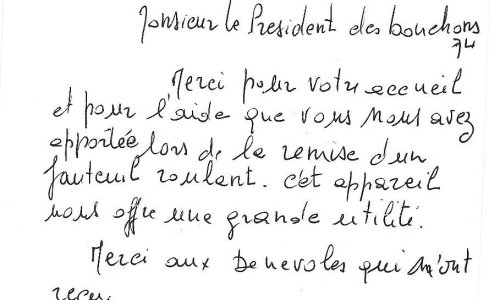 Monsieur le President des bouchons
74
Merci pour votre accueil
et pour l'aide que vous nous avez
apportée lors de la remise d'un
fauteuil roulant. cet appareil
nous offre une grande utilité.
Merci aux Benevoles qui m'ont
reçu.